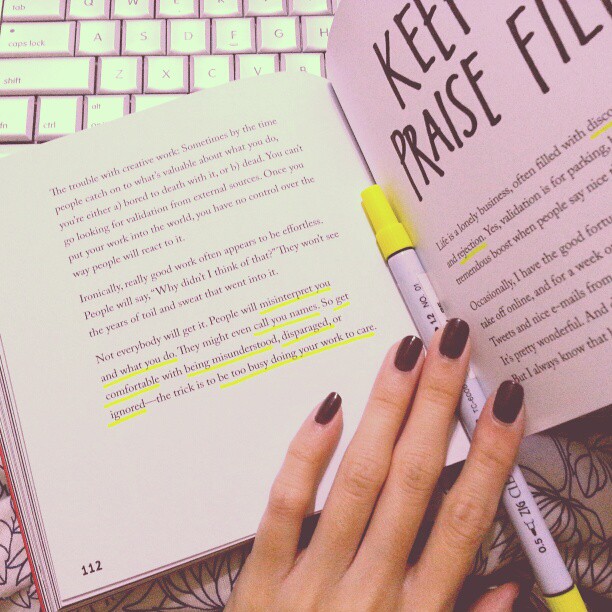 tab
Q
W
E
R
caps lock
A
S
D
F
G
H
shift
Z
X
C
V
B
fn
ctrl
alt
The trouble with creative work: Sometimes by the time
people catch on to what's valuable about what you do,
you're either a) bored to death with it, or b) dead. You can't
go looking for validation from external sources. Once you
put your work into the world, you have no control over the
way people will react to it.
Ironically, really good work often appears to be effortless.
People will say, "Why didn't I think of that?" They won't see
the years of toil and sweat that went into it.
Not everybody will get it. People will misinterpret you
and what you do. They might even call you names. So get
comfortable with being misunderstood, disparaged, or
ignored—the trick is to be too busy doing your work to care.
112
KEEP
PRAISE FIL
Life is a lonely business, often filled with disco
and rejection. Yes, validation is for parking,
tremendous boost when people say nice
Occasionally, I have the good fort
take off online, and for a week o
Tweets and nice e-mails from
It's pretty wonderful. And
But I always know that
0.5 ZIG